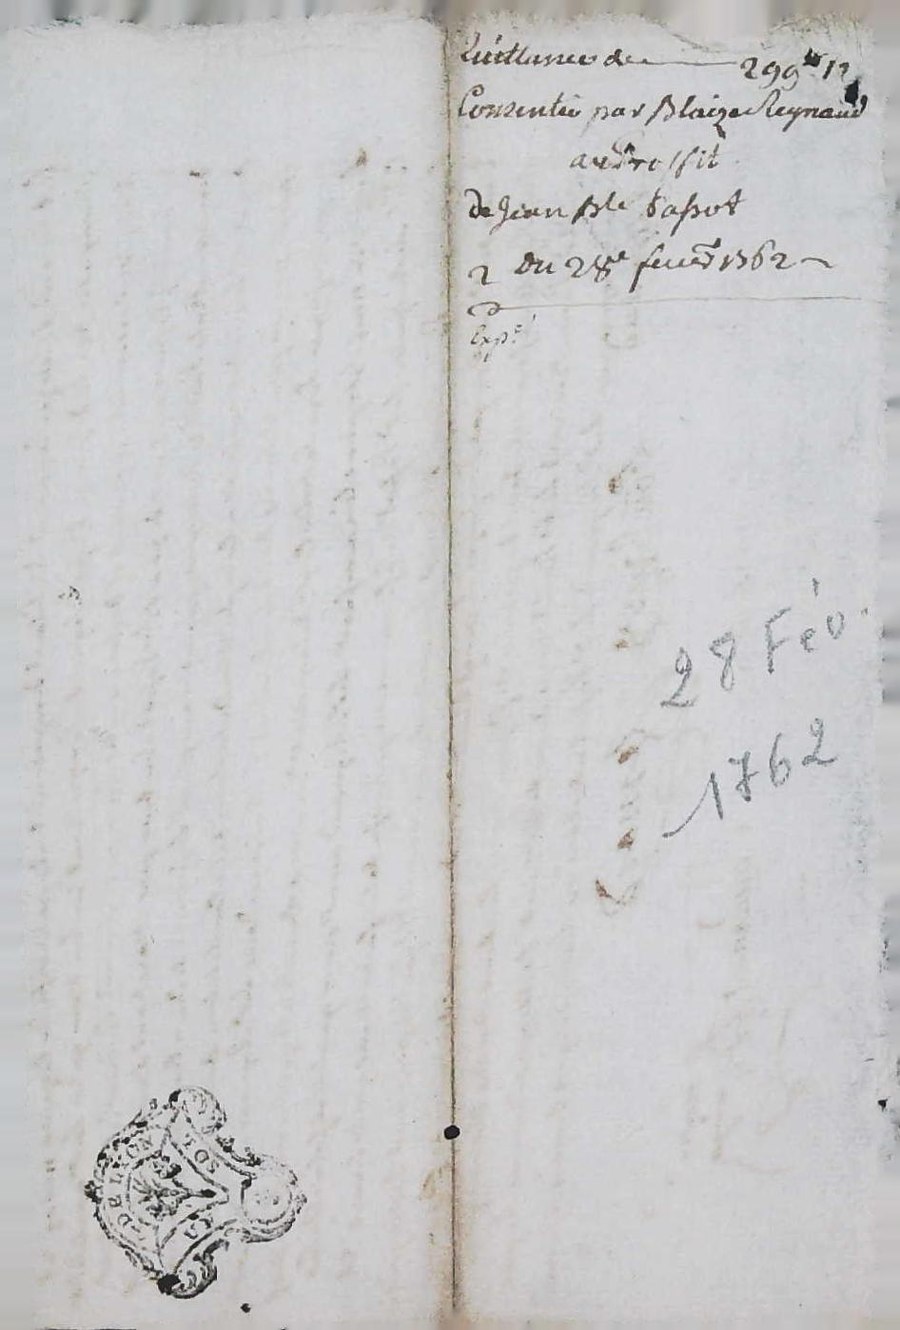 Quittance de 299 ₶ 12
Consentie par Blaize Reynaud
au Proffit
de Jean Bte
2 du 28e fever 1762
Expé
28 Fév.
1762
DE LYON
SOL